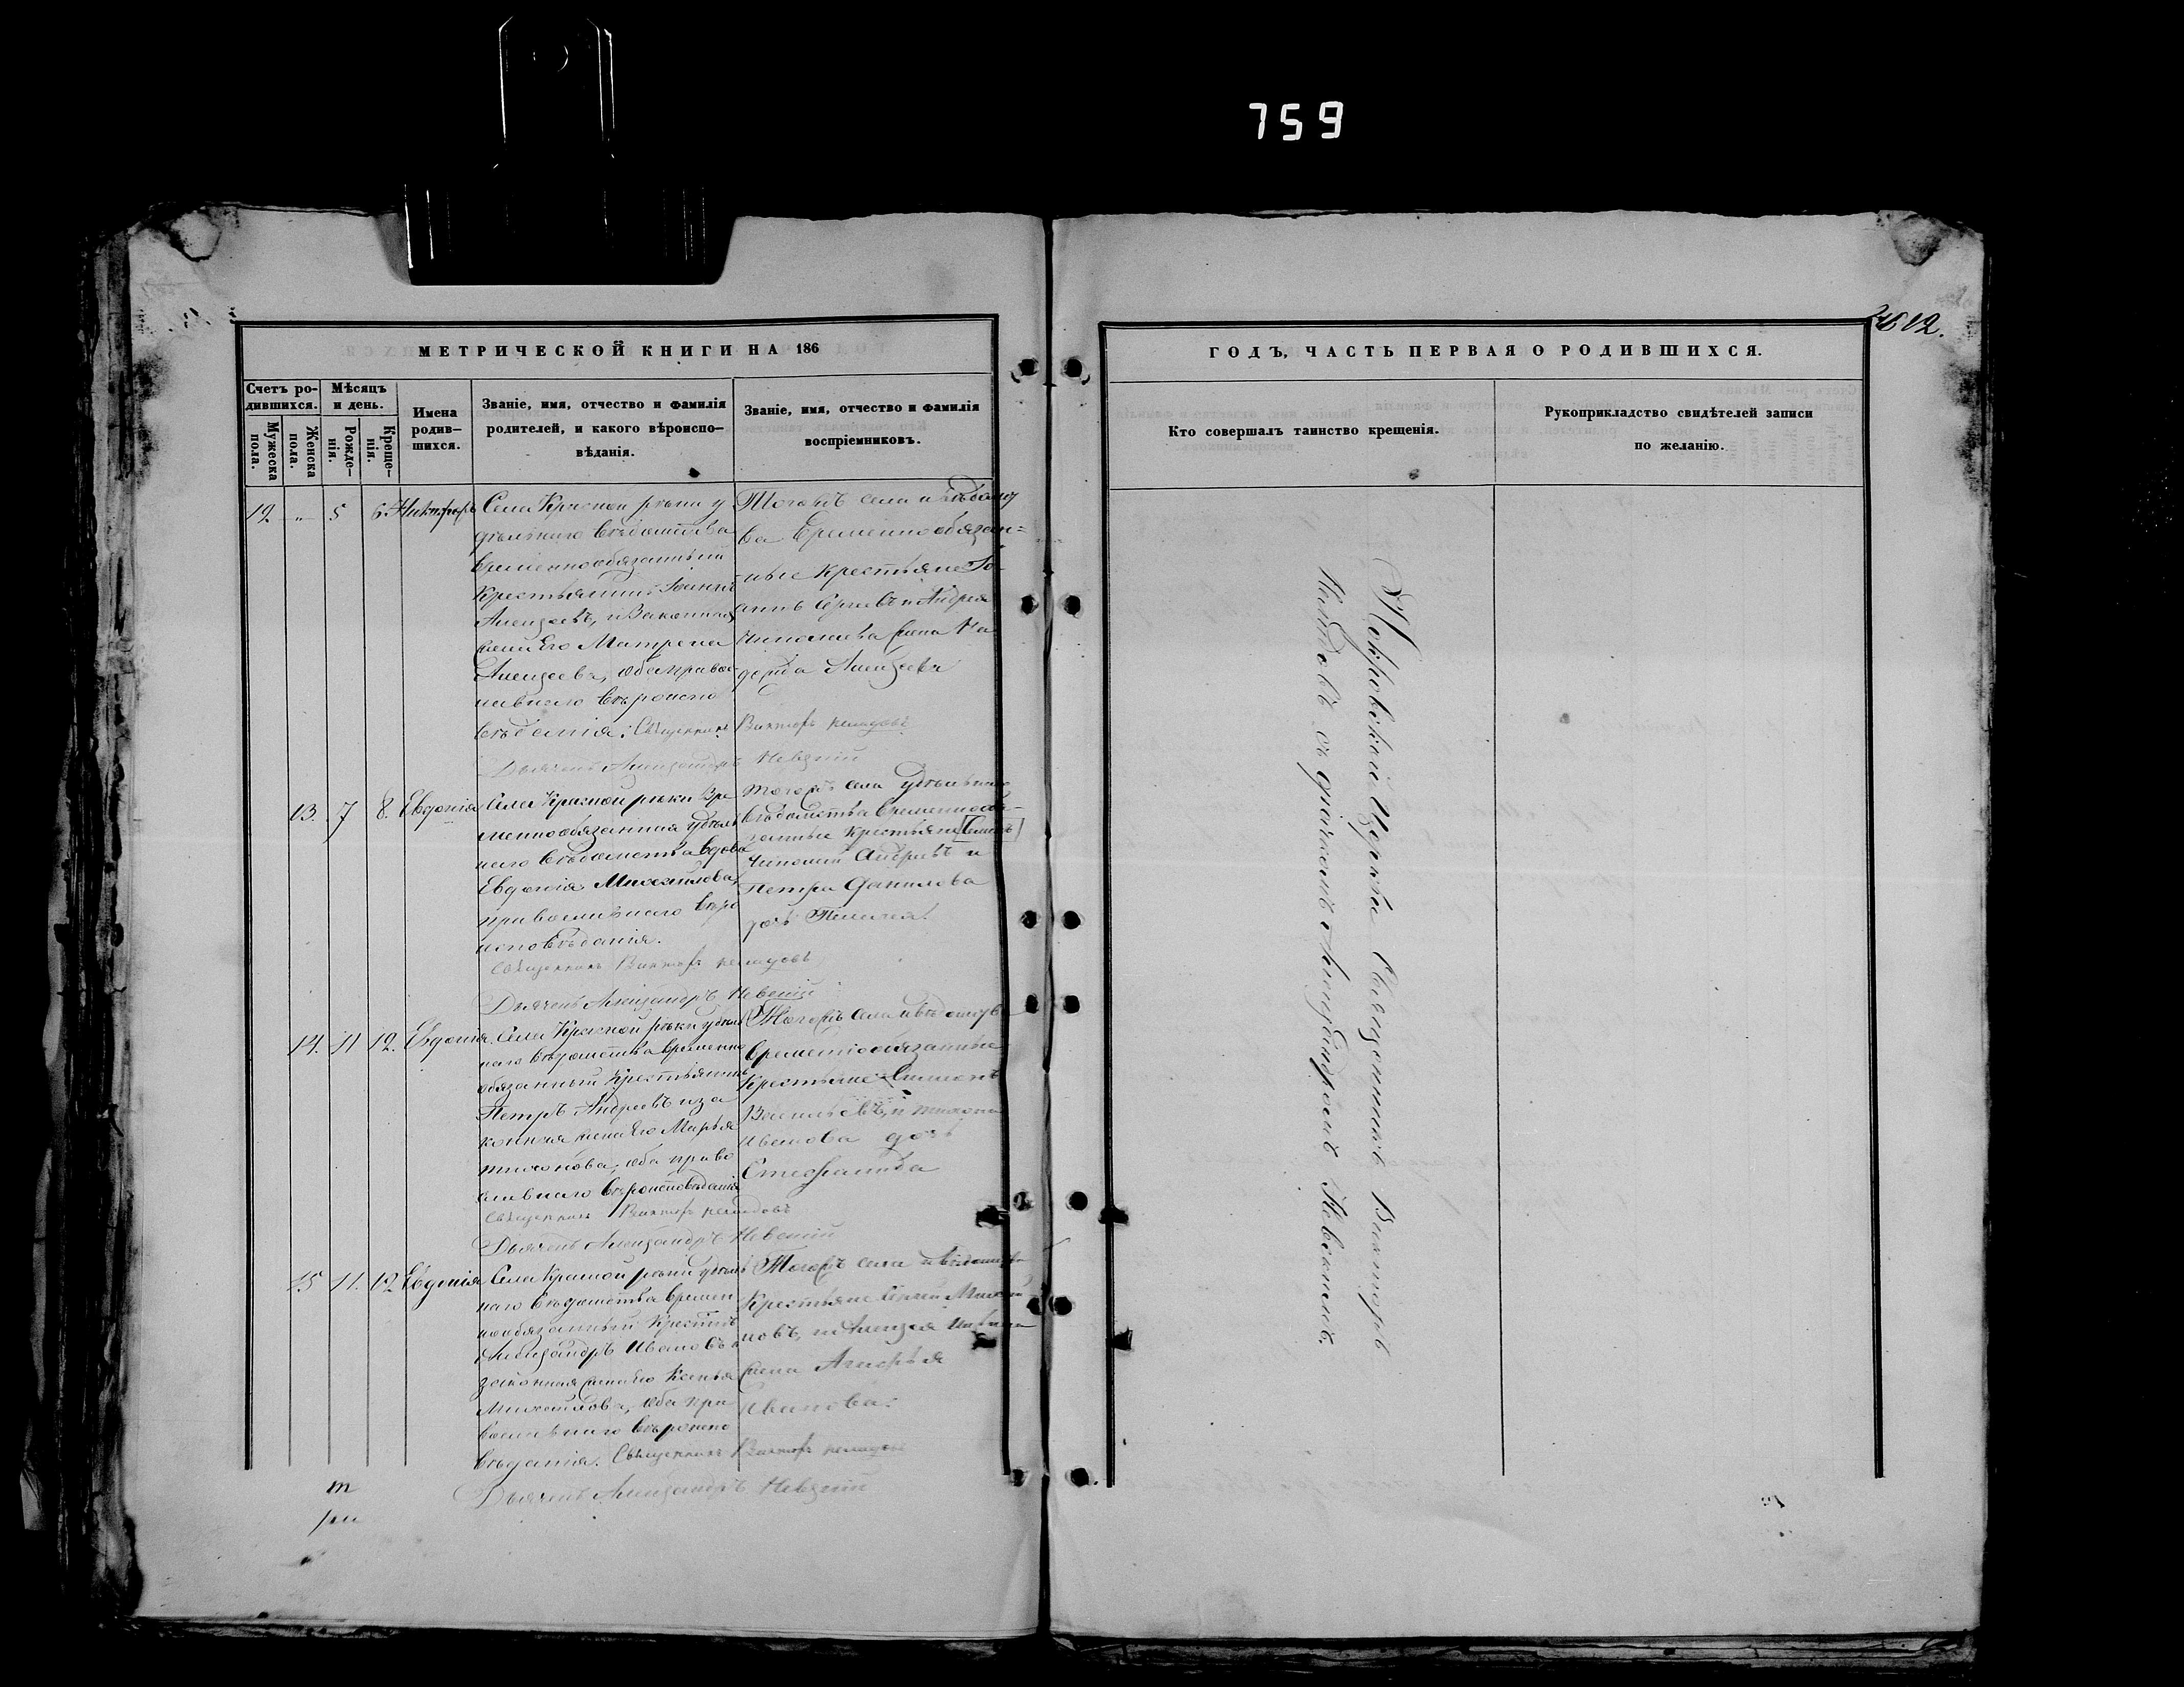 759
12.
МЕТРИЧЕСКОЙ КНИГИ НА 186
ГОДЪ, ЧАСТЬ ПЕРВАЯ О РОДИВШИХСЯ.
Счетъ ро-
дившихся.
Мужеска
пола.
Женска
пола.
Мѣсяцъ
и день.
Рожде-
нія.
Креще-
нія.
Имена
родив-
шихся.
Званіе, имя, отчество и фамилія
родителей, и какого вѣроиспо-
вѣданія.
Званіе, имя, отчество и фамилія
воспріемниковъ.
Кто совершалъ таинство крещенія.
Рукоприкладство свидѣтелей записи
по желанію.
12 " 5 6. Никифоръ
Села Красной рѣки у
дѣльнаго вѣдомства
временнообязанный
Крестьянинъ Іоаннъ
Алексѣевъ, и законная
жена Его Матрена
Алексѣева, оба право-
славнаго вѣроиспо
вѣданія. Священникъ Викторъ
Дьячекъ Александръ Невскій
Тогожъ села и
ва временнообязан=
ные крестьяне Іо-
аннъ Сергѣевъ и Андрея
Николаева жена
Алексѣева
13. 7 8. Евдокія
Села Красной рѣки Вре
меннообязанная удѣль
наго вѣдомства вдова
Евдокія Михайлова,
православнаго вѣро
исповѣданія.
Священникъ Викторъ
Дьячекъ Александръ Невскій
Тогожъ села удѣльнаго
вѣдомства временнообя-
занные крестьяне
Андреевъ и
Петра Данилова
дочь Пелагея.
14. 11 12. Евдокія.
Села Красной рѣки удѣль
наго вѣдомства временно
обязанный Крестьянинъ
Петръ Андреевъ и за
конная жена Его Марья
Тихонова, оба право
славнаго вѣроисповѣданія
Священникъ Викторъ
Дьячекъ Александръ Невскій
Тогожъ села и вѣдомства
временнообязанные
Крестьяне Симеонъ
Васильевъ, и Тихона
Иванова дочь
Стефанида
15 11. 12 Евдокія
Села Красной рѣки удѣль
наго вѣдомства времен
нообязанный Крестьян.
Александръ Ивановъ и
законная жена Его Ксенья
Михайлова, оба пра
вославнаго вѣроиспо
вѣданія. Священникъ Викторъ
Дьячекъ Александръ Невскій
Тогожъ села и вѣдомства
Крестьяне Сергей Михай
ловъ, и Алексѣя
жена Агафья
Иванова.
Покровской Церкви Священникъ Викторъ
съ дьячкомъ Александромъ Невскимъ.